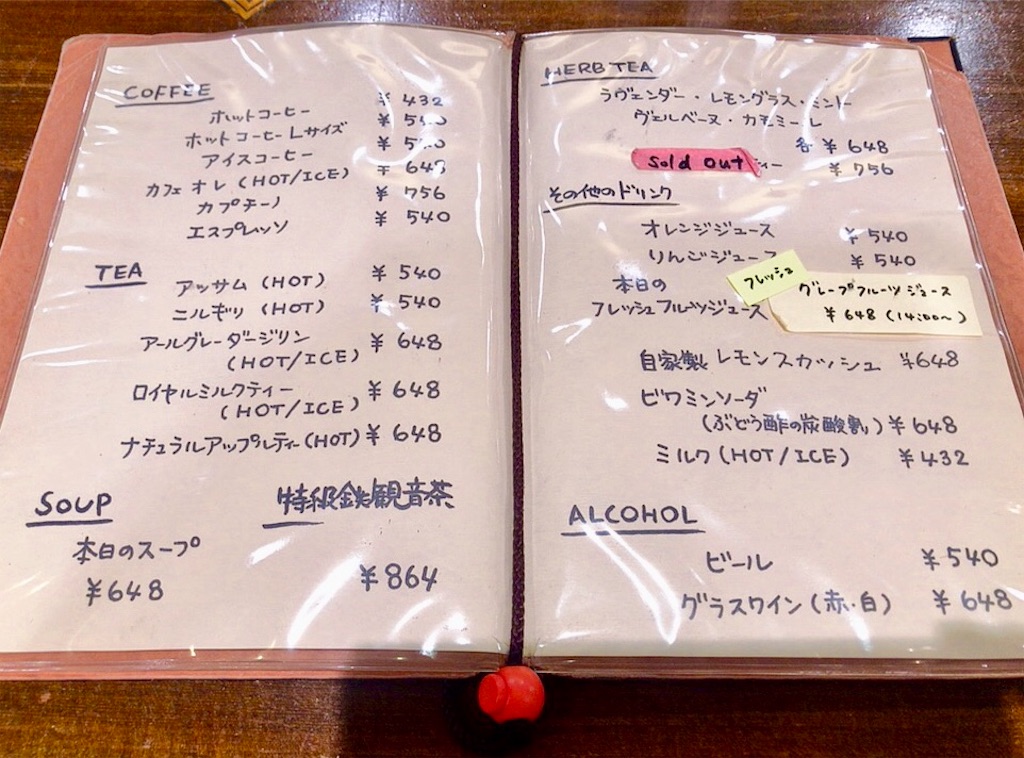 COFFEE
ホットコーヒー ¥432
ホットコーヒー Lサイズ ¥540
アイスコーヒー ¥540
カフェオレ (HOT/ICE) ¥648
カプチーノ ¥756
エスプレッソ ¥540
TEA
アッサム (HOT) ¥540
ニルギリ (HOT) ¥540
アールグレーダージリン ¥648
(HOT/ICE)
ロイヤルミルクティー ¥648
(HOT/ICE)
ナチュラルアップルティー(HOT) ¥648
SOUP
本日のスープ
¥648
特級鉄観音茶
¥864
HERB TEA
ラヴェンダー・レモングラス・ミント
ヴェルベーヌ・カモミール
各 ¥648
Sold out ティー ¥756
その他のドリンク
オレンジジュース ¥540
りんごジュース ¥540
本日の
フレッシュフルーツジュース
フレッシュ
グレープフルーツジュース
¥648 (14:00〜)
自家製レモンスカッシュ ¥648
ビワミンソーダ
(ぶどう酢の炭酸割り) ¥648
ミルク(HOT/ICE) ¥432
ALCOHOL
ビール ¥540
グラスワイン(赤・白) ¥648